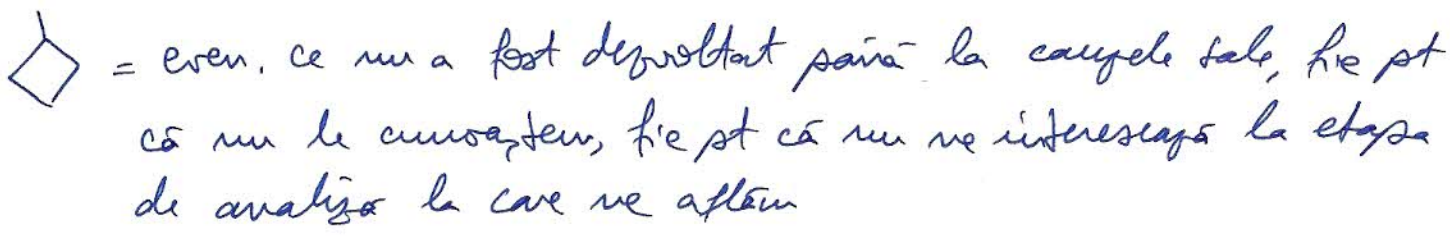 = even. ce nu a fost dezvoltat până la cauzele sale, fie pt
că nu le cunoaştem, fie pt că nu ne interesează la etapa
de analiză la care ne aflăm